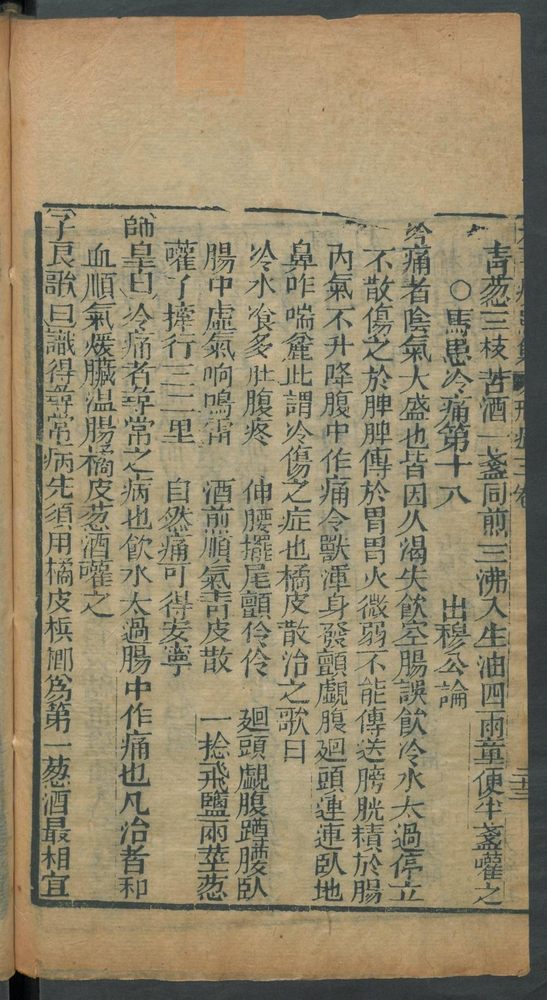 青葱三枝苦酒一盞同煎三沸入生油四兩童便半盞嚾之
○馬患冷痛第十八　出穆公論
冷痛者陰氣大盛也皆因久渴失飲空腸誤飲冷水太過停立
不散傷之於脾脾傳於胃胃火微弱不能傳送膀胱積於腸
內氣不升降腹中作痛令獸渾身發顫覷腹廻頭連連臥地
鼻咋喘麄此謂冷傷之症也橘皮散治之歌曰
冷水飡多肚腹疼　伸腰擺尾顫伶伶　廻頭覷腹蹲腰臥
腸中虛氣响鳴雷　酒煎順氣青皮散　一捻飛鹽兩莖葱
嚾了摔行三二里　自然痛可得安寧
師皇曰冷痛者尋常之病也飲水太過腸中作痛也凡治者和
血順氣煖臟温腸橘皮葱酒嚾之
子良歌曰識得尋常病先須用橘皮梹榔為第一葱酒最相宜